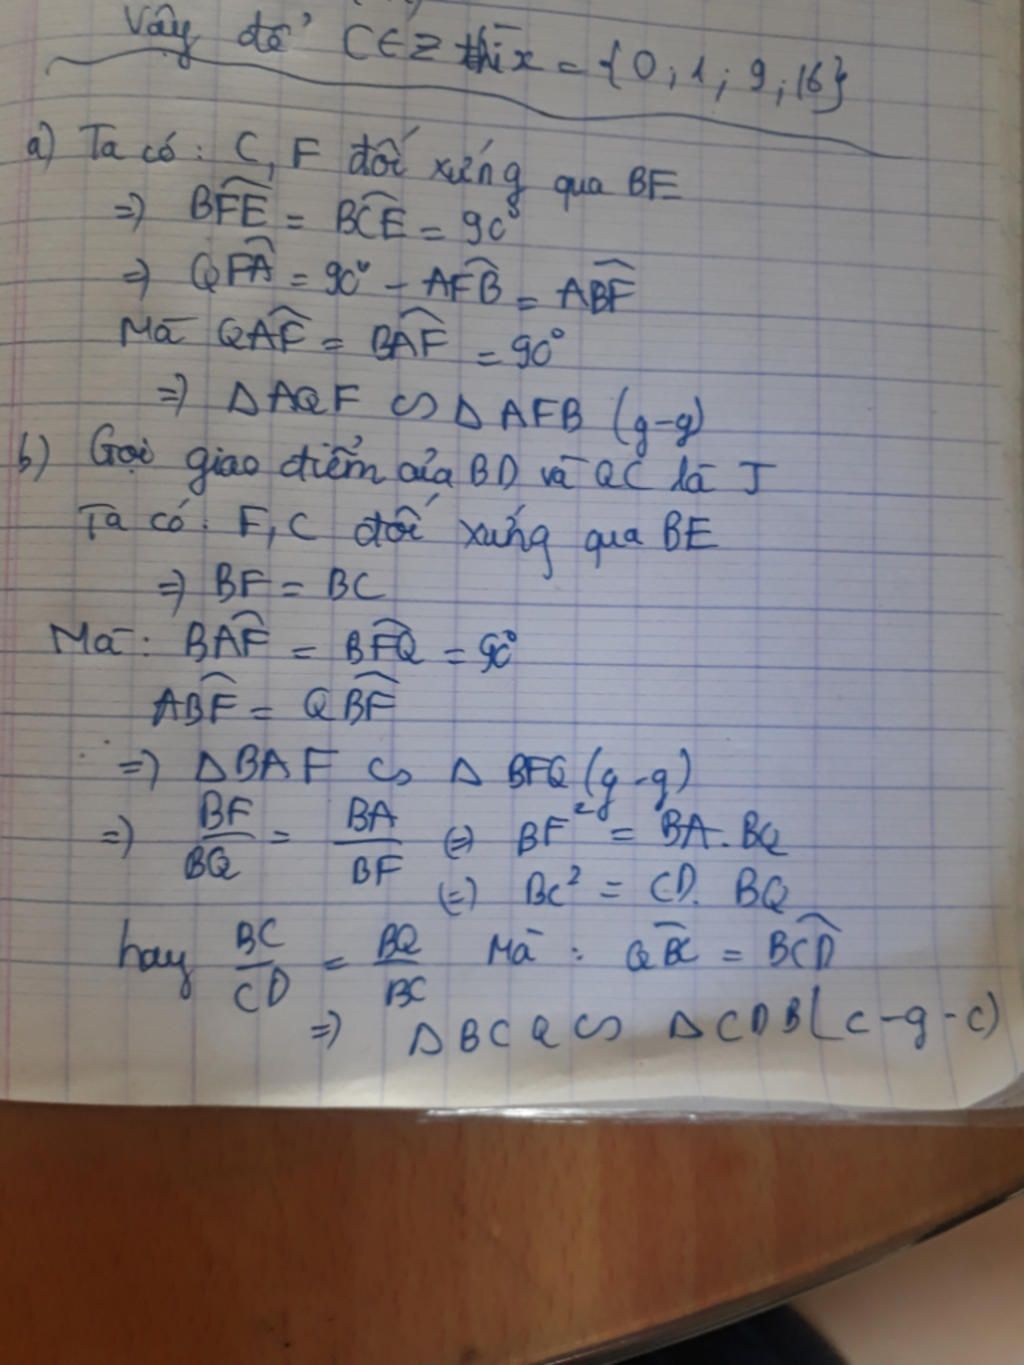 Vậy để C∈Z thì x = {0; 1; 9; 16}
a) Ta có: C, F đối xứng qua BE
=> BFE = BCE = 90°
=> QFA = 90° - AFB = ABF
Mà QAF = BAF = 90°
=> ΔAQF ∽ ΔAFB (g-g)
b) Gọi giao điểm của BD và QC là J
Ta có: F, C đối xứng qua BE
=> BF = BC
Mà: BAF = BFQ = 90°
ABF = QBF
=> ΔBAF ∽ ΔBFQ (g-g)
=> BF/BQ = BA/BF (=) BF² = BA. BQ
(=) BC² = CD. BQ
hay BC/CD = BQ/BC Mà: QBC = BCD
=> ΔBCQ ∽ ΔCDB (c-g-c)